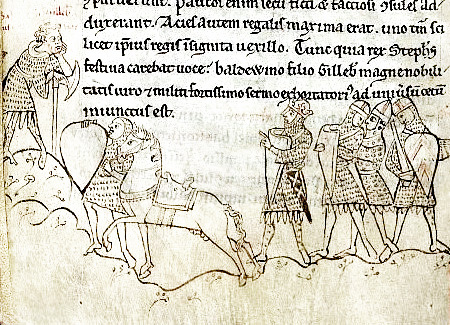 Pauci enim secū ficti & factiosi ꝯsules ad
duxerant. Acies autem regalis maxima erat. uno tm̄ sci
licet ipsius regis insignita uexillo. Tunc quia rex Stephs
festiua carebat uoce: baldewino filio Gilleb magne nobili
tatis uiro & militi fortissimo sermo exhortatoriꝰ ad uniuersū cetum
iniunctus est.